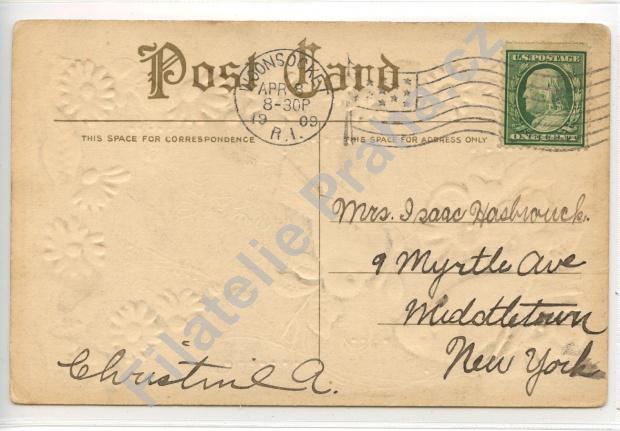 Post Card
WOONSOCKET
APR
8-30P
1909
R.I.
U.S. POSTAGE
ONE CENT
THIS SPACE FOR CORRESPONDENCE
THIS SPACE FOR ADDRESS ONLY
Mrs. Isaac Hasbrouck.
9 Myrtle Ave
Middletown
New York
Christine A.
Filatelie Praha.cz